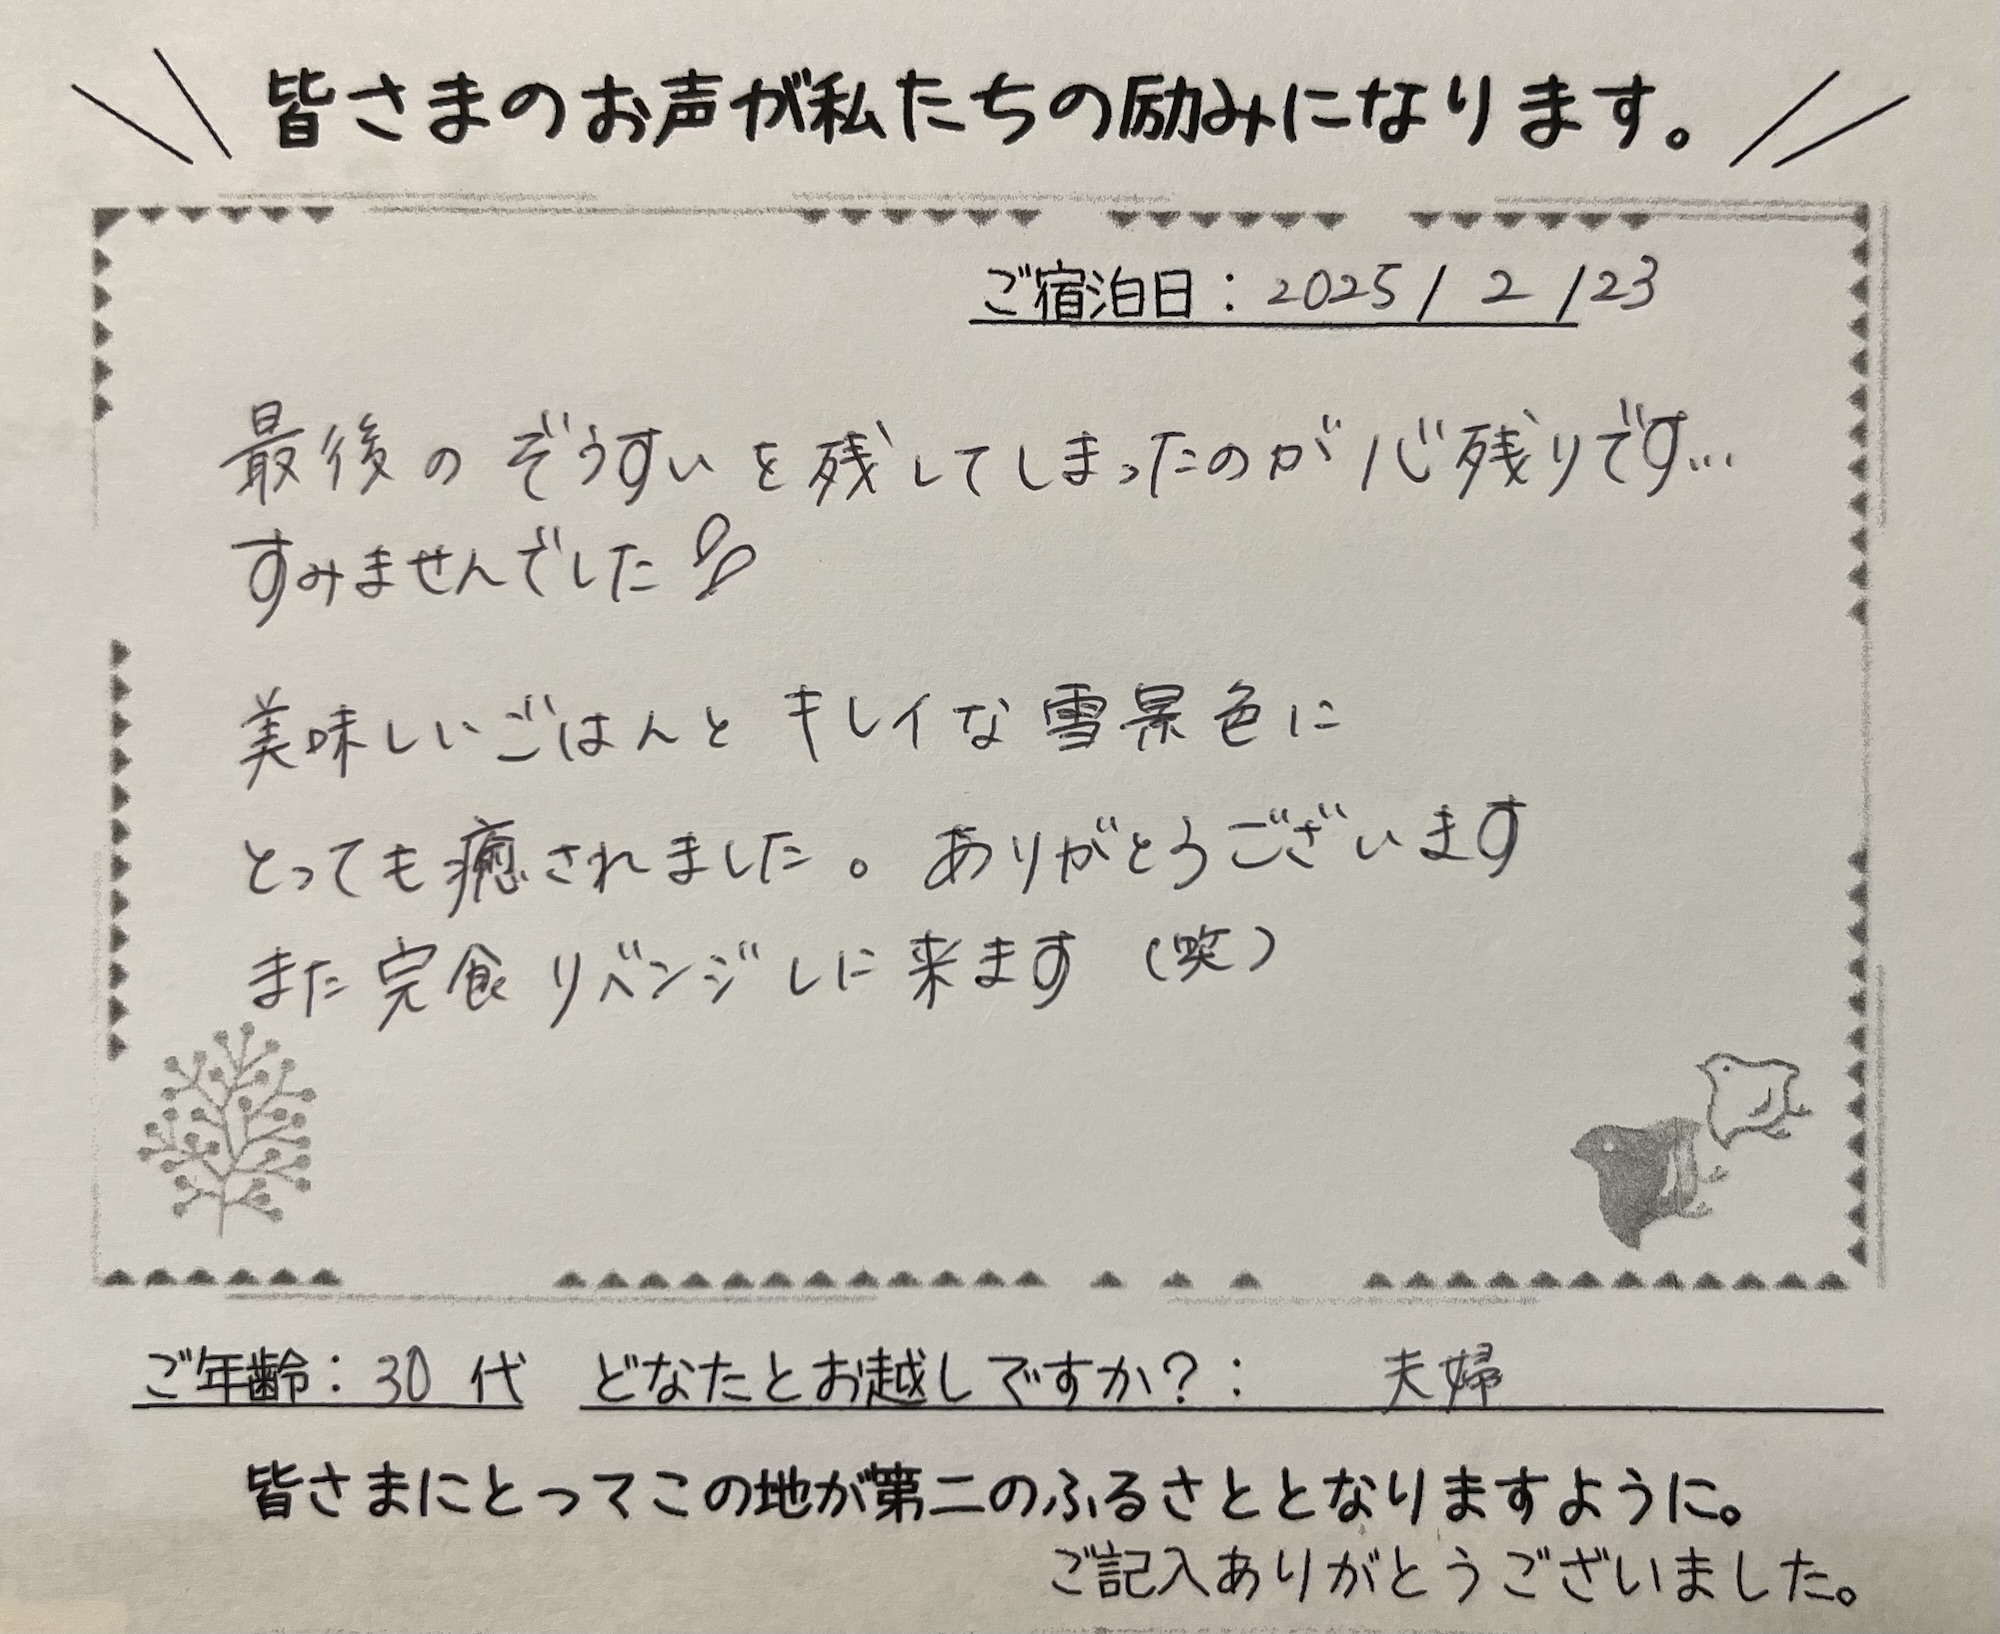 皆さまのお声が私たちの励みになります。
ご宿泊日：2025/2/23
最後のぞうすいを残してしまったのが心残りです…
すみませんでした
美味しいごはんとキレイな雪景色に
とっても癒されました。ありがとうございます
また完食リベンジしに来ます(笑)
ご年齢：30代 どなたとお越しですか？： 夫婦
皆さまにとってこの地が第二のふるさととなりますように。
ご記入ありがとうございました。